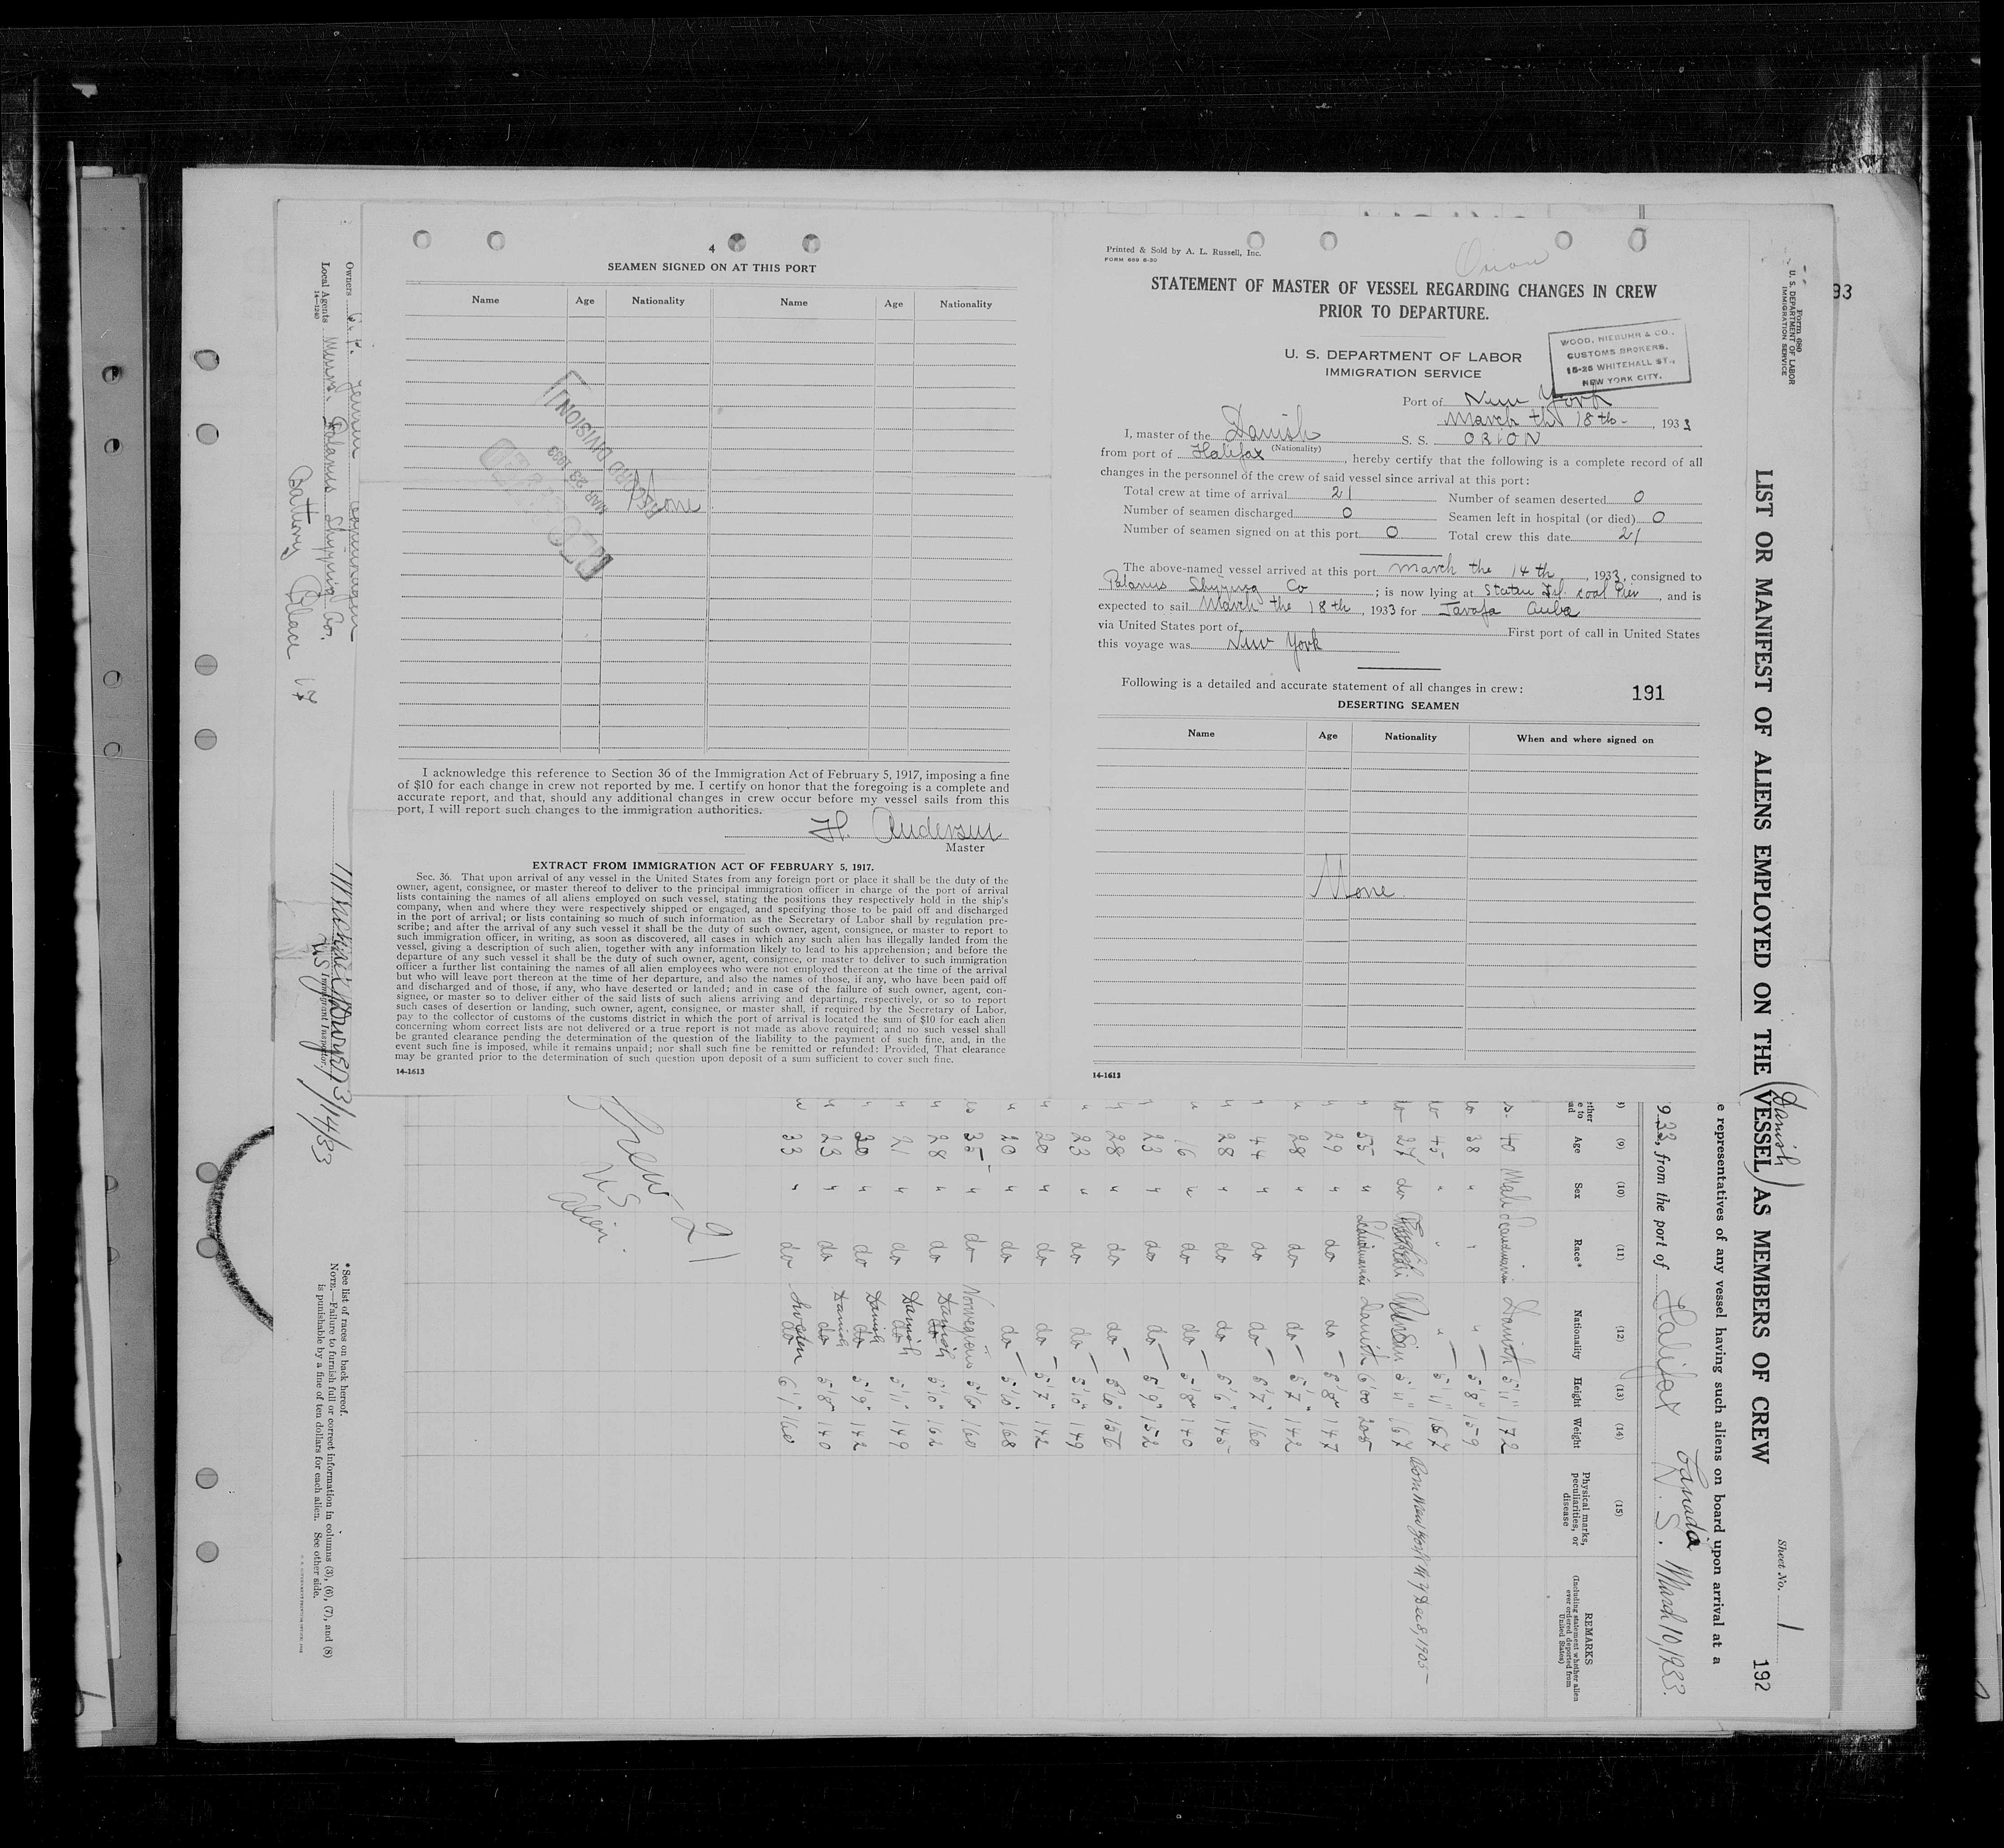 4
SEAMEN SIGNED ON AT THIS PORT
Name Age Nationality Name Age Nationality
RECORD DIVISION
MAR 23 1933
None
I acknowledge this reference to Section 36 of the Immigration Act of February 5, 1917, imposing a fine
of $10 for each change in crew not reported by me. I certify on honor that the foregoing is a complete and
accurate report, and that, should any additional changes in crew occur before my vessel sails from this
port, I will report such changes to the immigration authorities.
H. Andersen
Master
EXTRACT FROM IMMIGRATION ACT OF FEBRUARY 5, 1917.
Sec. 36. That upon arrival of any vessel in the United States from any foreign port or place it shall be the duty of the
owner, agent, consignee, or master thereof to deliver to the principal immigration officer in charge of the port of arrival
lists containing the names of all aliens employed on such vessel, stating the positions they respectively hold in the ship's
company, when and where they were respectively shipped or engaged, and specifying those to be paid off and discharged
in the port of arrival; or lists containing so much of such information as the Secretary of Labor shall by regulation pre-
scribe; and after the arrival of any such vessel it shall be the duty of such owner, agent, consignee, or master to report to
such immigration officer, in writing, as soon as discovered, all cases in which any such alien has illegally landed from the
vessel, giving a description of such alien, together with any information likely to lead to his apprehension; and before the
departure of any such vessel it shall be the duty of such owner, agent, consignee, or master to deliver to such immigration
officer a further list containing the names of all alien employees who were not employed thereon at the time of the arrival
but who will leave port thereon at the time of her departure, and also the names of those, if any, who have been paid off
and discharged and of those, if any, who have deserted or landed; and in case of the failure of such owner, agent, con-
signee, or master so to deliver either of the said lists of such aliens arriving and departing, respectively, or so to report
such cases of desertion or landing, such owner, agent, consignee, or master shall, if required by the Secretary of Labor,
pay to the collector of customs of the customs district in which the port of arrival is located the sum of $10 for each alien
concerning whom correct lists are not delivered or a true report is not made as above required; and no such vessel shall
be granted clearance pending the determination of the question of the liability to the payment of such fine, and, in the
event such fine is imposed, while it remains unpaid; nor shall such fine be remitted or refunded: Provided, That clearance
may be granted prior to the determination of such question upon deposit of a sum sufficient to cover such fine.
14-1613
Printed & Sold by A. L. Russell, Inc.
FORM 689 6-30
Orion
STATEMENT OF MASTER OF VESSEL REGARDING CHANGES IN CREW
PRIOR TO DEPARTURE.
U. S. DEPARTMENT OF LABOR
IMMIGRATION SERVICE
WOOD, NIEBUHR & CO.,
CUSTOMS BROKERS,
15-25 WHITEHALL ST.,
NEW YORK CITY.
Port of New York
March the 18th - , 1933
I, master of the Danish S. S. ORION
(Nationality)
from port of Halifax , hereby certify that the following is a complete record of all
changes in the personnel of the crew of said vessel since arrival at this port:
Total crew at time of arrival 21 Number of seamen deserted 0
Number of seamen discharged 0 Seamen left in hospital (or died) 0
Number of seamen signed on at this port 0 Total crew this date 21
The above-named vessel arrived at this port March the 14th , 1933, consigned to
Co ; is now lying at Staten Isl. coal Pier , and is
expected to sail March the 18th , 1933 for Cuba
via United States port of First port of call in United States
this voyage was New York
Following is a detailed and accurate statement of all changes in crew:
191
DESERTING SEAMEN
Name Age Nationality When and where signed on
None
14-1613
93
Form 680
U. S. DEPARTMENT OF LABOR
IMMIGRATION SERVICE
LIST OR MANIFEST OF ALIENS EMPLOYED ON THE (Danish VESSEL) AS MEMBERS OF CREW
Sheet No. 1
192
e representatives of any vessel having such aliens on board upon arrival at a
933, from the port of Halifax Canada N. S. March 10, 1933.
(9) (10) (11) (12) (13) (14) (15)
Age Sex Race* Nationality Height Weight Physical marks, peculiarities, or disease REMARKS
(Including statement whether alien ever ordered deported from United States)
40 Male Scandinavian Danish 5'11" 172
38 " " " 5'8" 159
45 " " " 5'11" 167
27 do 5'11" 167 Born New York N Y Dec 8, 1905
55 " Scandinavian Danish 6'00 205
29 " do do 5'8" 147
28 " do do 5'7" 142
44 " do do 5'7" 160
28 " do do 5'6" 145
16 " do do 5'8" 140
23 " do do 5'9" 152
28 " do do 156
23 " do do 5'10" 149
20 " do do 5'7" 142
20 " do do 5'10" 168
35 " do Norwegian 5'6" 160
28 " do Danish 5'10" 162
21 " do Danish 5'11" 149
30 " do Danish 5'9" 142
23 " do Danish 5'8" 140
33 " do Sweden 6'1" 160
Crew 21
US
alien
Owners C.P. Jensen Copenhagen
Local Agents Messrs. Shipping Co.
14-1240
Battery Place 17
US Immigrant Inspector.
3/14/33
* See list of races on back hereof.
NOTE.—Failure to furnish full or correct information in columns (3), (6), (7), and (8)
is punishable by a fine of ten dollars for each alien. See other side.